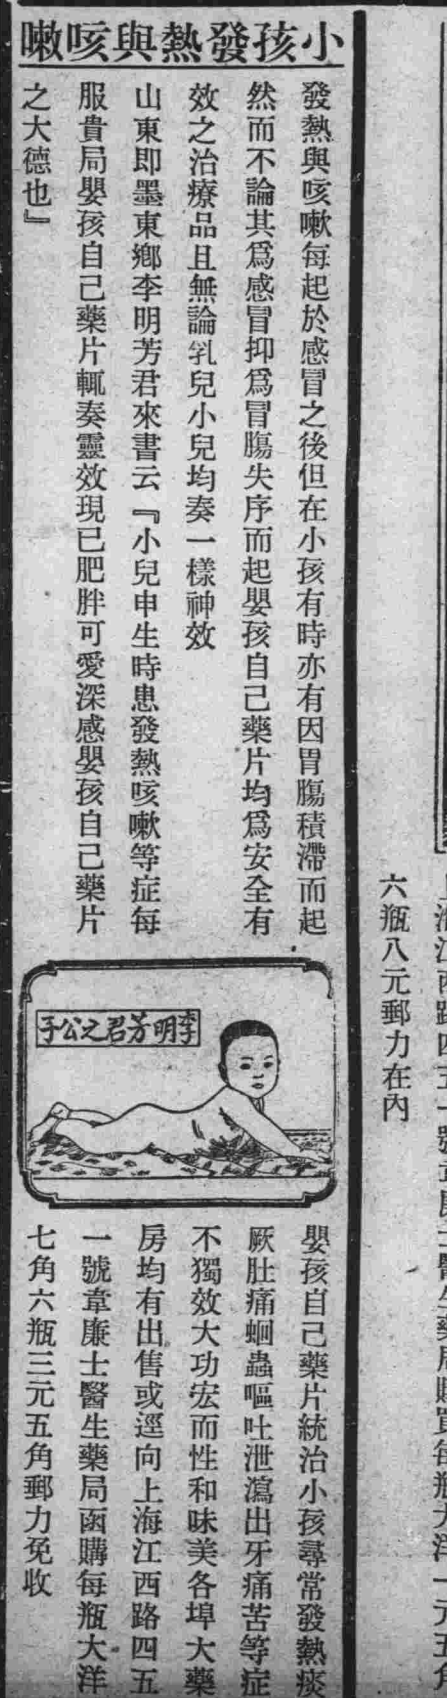 小孩發熱與咳嗽
發熱與咳嗽每起於感冒之後但在小孩有時亦有因胃腸積滯而起
然而不論其爲感冒抑爲冒腸失序而起嬰孩自己藥片均爲安全有
效之治療品且無論乳兒小兒均奏一樣神效
山東即墨東鄉李明芳君來書云『小兒申生時患發熱咳嗽等症每
服貴局嬰孩自己藥片輒奏靈效現已肥胖可愛深感嬰孩自己藥片
之大德也』
李明芳君之公子
嬰孩自己藥片統治小孩尋常發熱痰
厥肚痛蛔蟲嘔吐泄瀉出牙痛苦等症
不獨效大功宏而性和味美各埠大藥
房均有出售或逕向上海江西路四五
一號韋廉士醫生藥局函購每瓶大洋
七角六瓶三元五角郵力免收
六瓶八元郵力在內